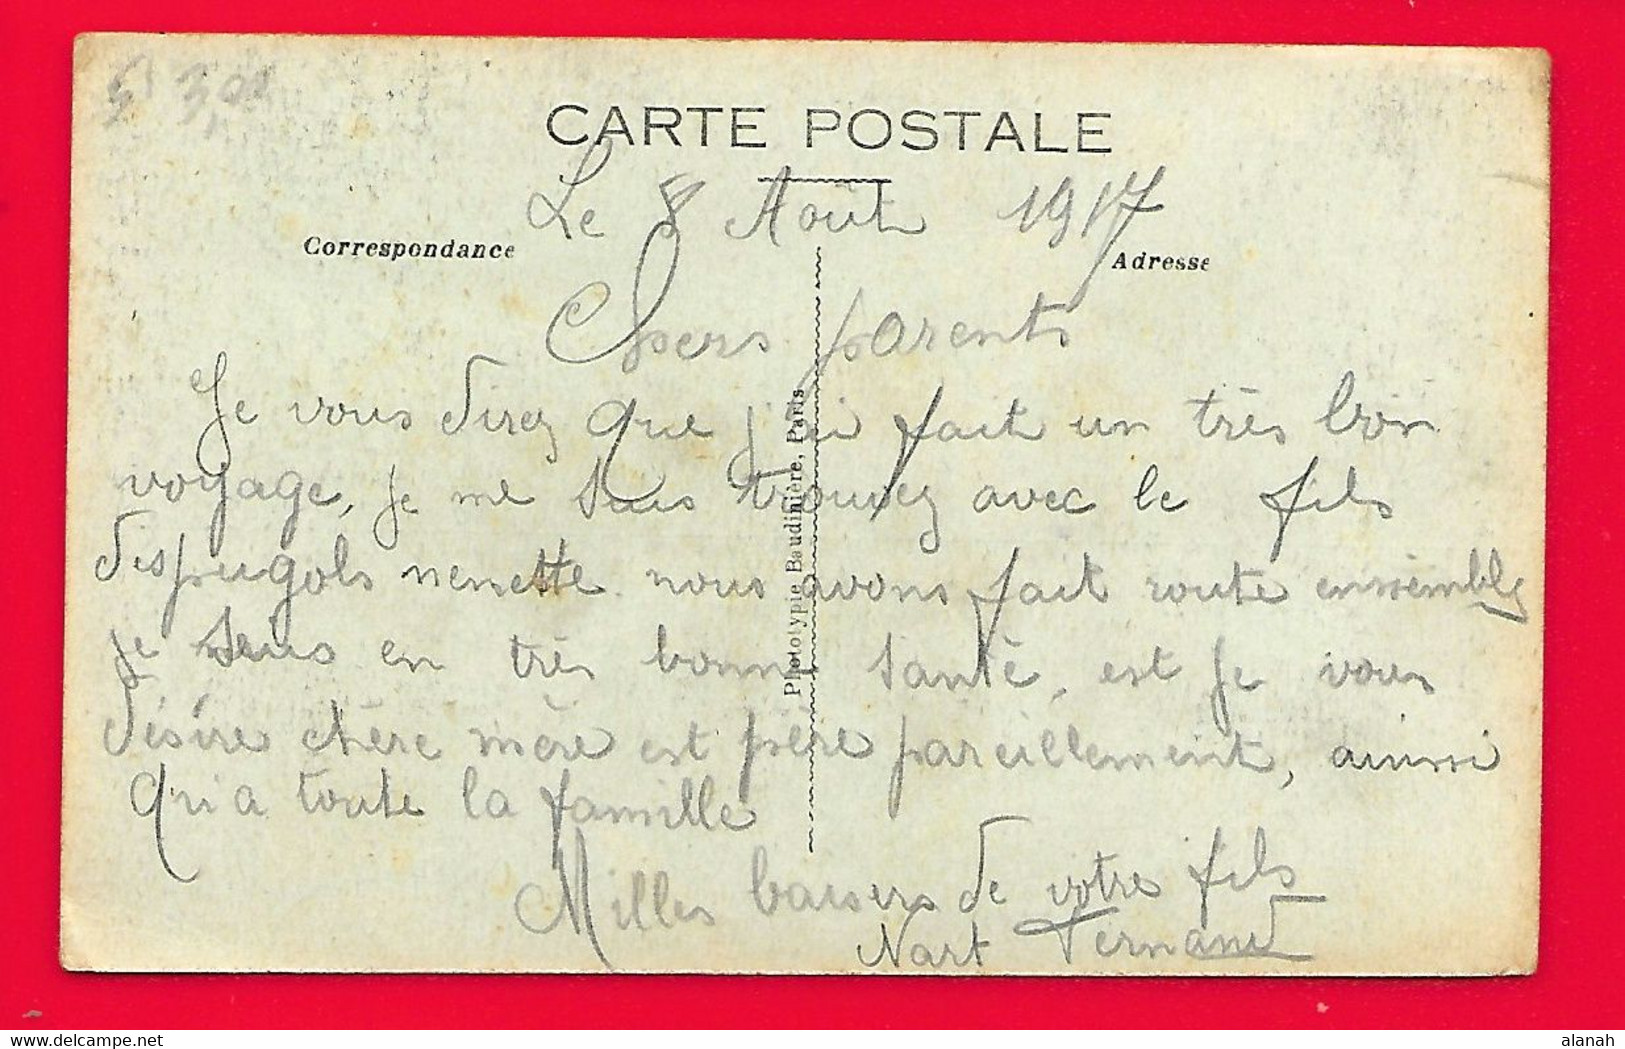 3,00
CARTE POSTALE
Le 8 Août 1917
Correspondance
Adresse
Chers parents
Je vous direz que j'ai fait un très bon
voyage, je me suis trouvez avec le fils
despugols nenette nous avons fait route ensembles
je suis en très bonne santé, est je vous
désire chère mère est père pareillement, ainssi
qu'a toute la famille
Milles baisers de votre fils
Nart Fernand
Phototypie Baudinière, Paris
delcampe.net
alanah